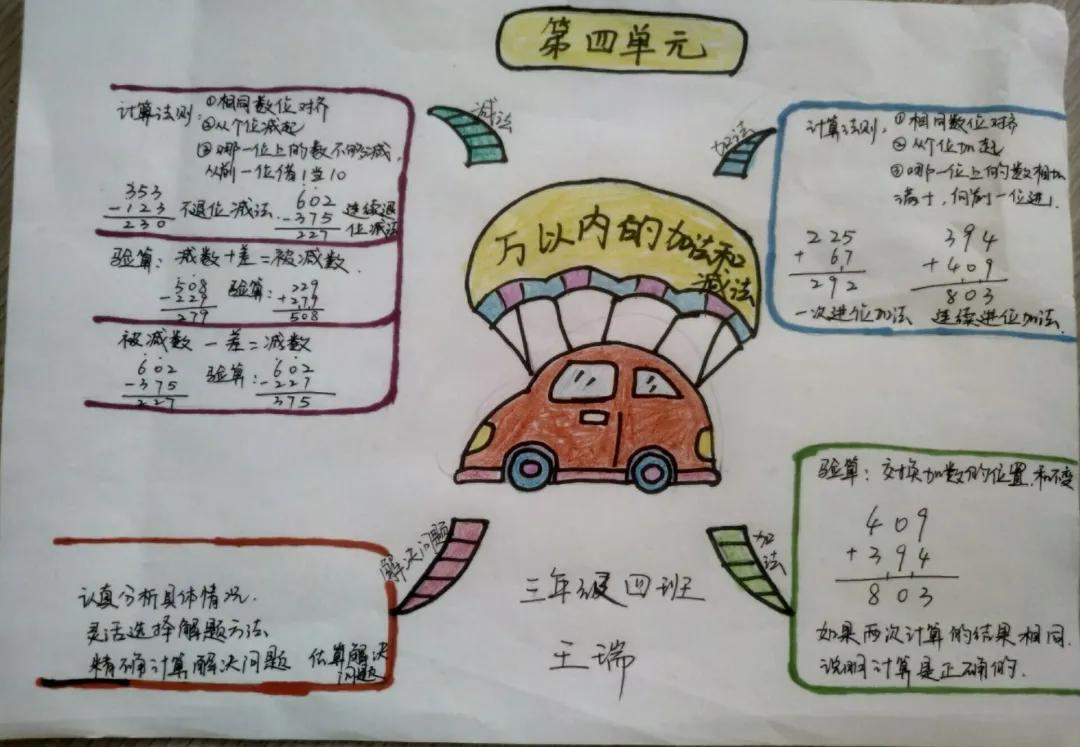 第四单元
减法
计算法则:①相同数位对齐
②从个位减起
③哪一位上的数不够减,
从前一位借1当10
353
-123
230
不退位减法.
602
-375
227
连续退
位减法
验算: 减数+差=被减数.
508
-229
279
验算:
229
+279
508
被减数-差=减数
602
-375
227
验算:
602
-227
375
加法
计算法则, ①相同数位对齐
②从个位加起
③哪一位上的数相加
满十,向前一位进1.
225
+ 67
292
一次进位加法
394
+409
803
连续进位加法.
万以内的加法和
减法
解决问题
认真分析具体情况.
灵活选择解题方法
精确计算解决问题 估算解决
问题
加法
验算: 交换加数的位置,和不变
409
+394
803
如果两次计算的结果相同.
说明计算是正确的.
三年级四班
王瑞